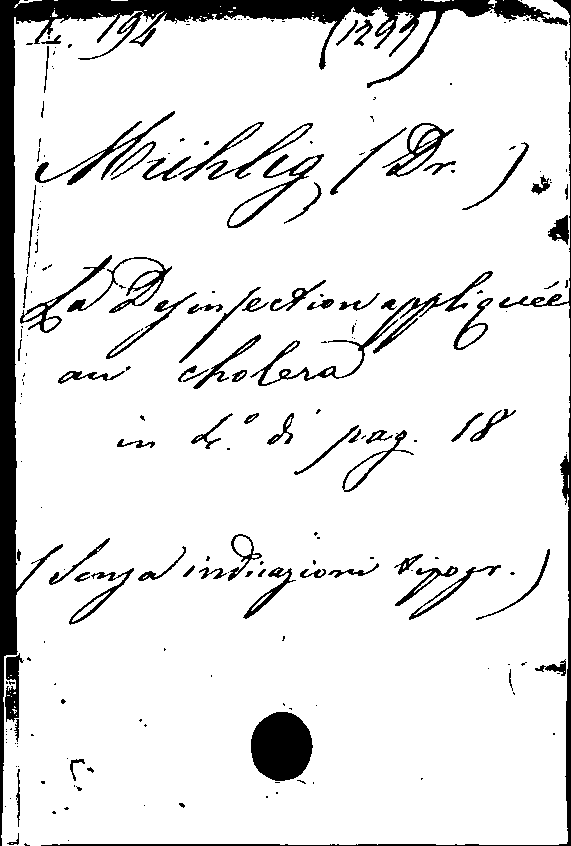 E. 194 (1299)
Mühlig (Dr. )
La Desinfection appliquée
au cholera
in 4.° di pag. 18
(Senza indicazioni tipogr. )